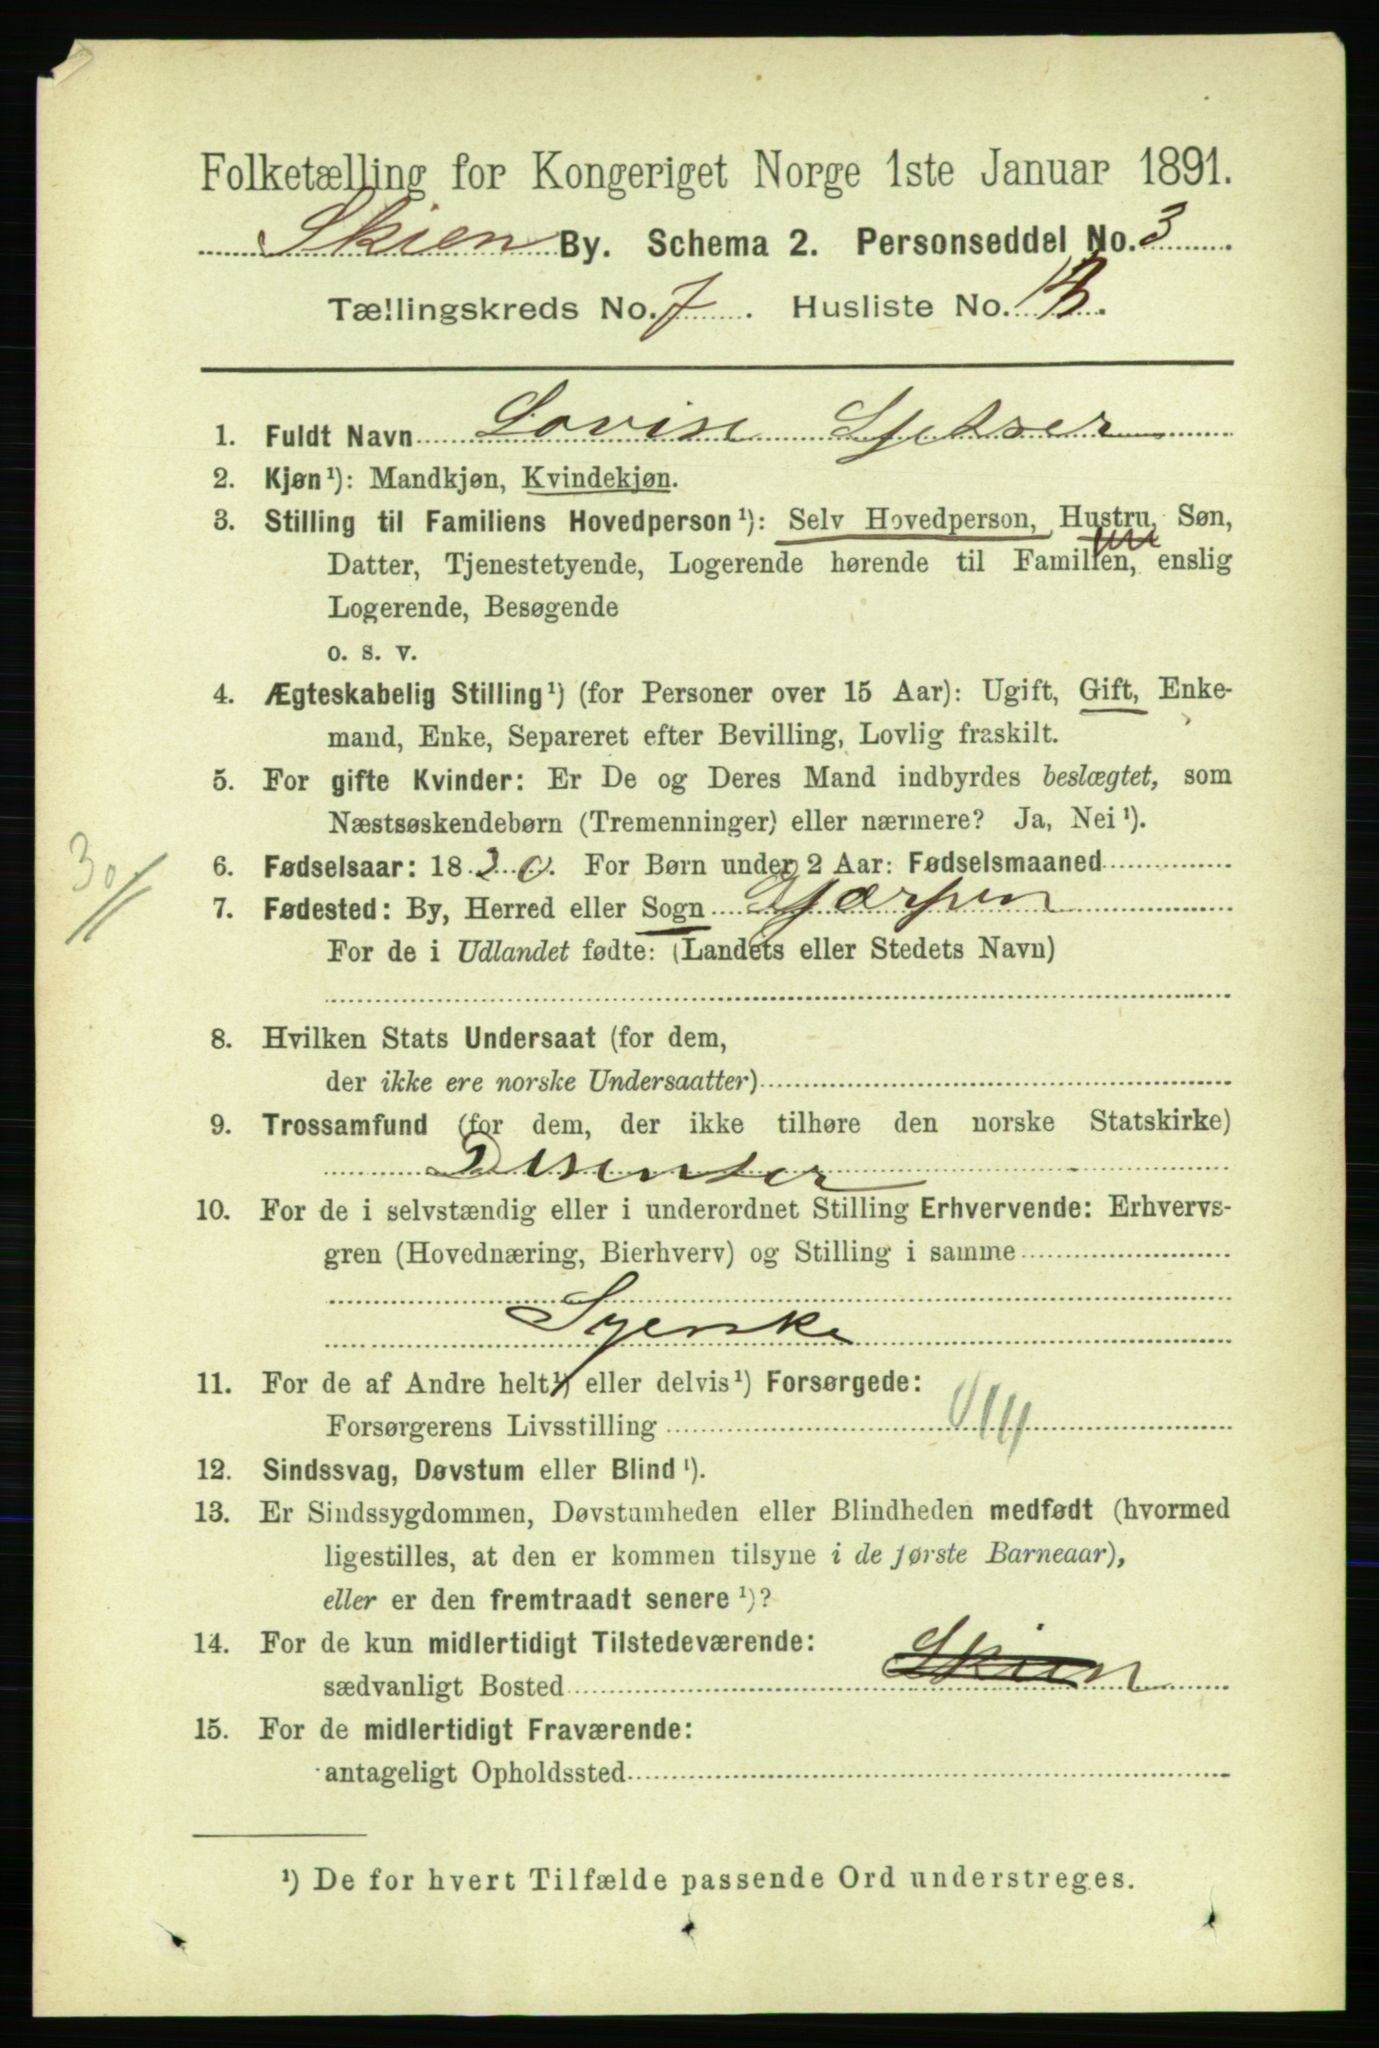 Folketælling for Kongeriget Norge 1ste Januar 1891.
Skien By. Schema 2. Personseddel No. 3
Tællingskreds No. 7. Husliste No.
1. Fuldt Navn Lovise
2. Kjøn¹): Mandkjøn, Kvindekjøn.
3. Stilling til Familiens Hovedperson¹): Selv Hovedperson, Hustru, Søn,
Datter, Tjenestetyende, Logerende hørende til Familien, enslig
Logerende, Besøgende
o. s. v.
4. Ægteskabelig Stilling¹) (for Personer over 15 Aar): Ugift, Gift, Enke-
mand, Enke, Separeret efter Bevilling, Lovlig fraskilt.
5. For gifte Kvinder: Er De og Deres Mand indbyrdes beslægtet, som
Næstsøskendebørn (Tremenninger) eller nærmere? Ja, Nei¹).
30/
6. Fødselsaar: 1820. For Børn under 2 Aar: Fødselsmaaned
7. Fødested: By, Herred eller Sogn Gjærpen
For de i Udlandet fødte: (Landets eller Stedets Navn)
8. Hvilken Stats Undersaat (for dem,
der ikke ere norske Undersaatter)
9. Trossamfund (for dem, der ikke tilhøre den norske Statskirke)
Disenter
10. For de i selvstændig eller i underordnet Stilling Erhvervende: Erhvervs-
gren (Hovednæring, Bierhverv) og Stilling i samme
Syerske
11. For de af Andre helt¹) eller delvis¹) Forsørgede:
Forsørgerens Livsstilling
12. Sindssvag, Døvstum eller Blind¹).
13. Er Sindssygdommen, Døvstumheden eller Blindheden medfødt (hvormed
ligestilles, at den er kommen tilsyne i de første Barneaar),
eller er den fremtraadt senere¹)?
14. For de kun midlertidigt Tilstedeværende:
sædvanligt Bosted Skien
15. For de midlertidigt Fraværende:
antageligt Opholdssted
¹) De for hvert Tilfælde passende Ord understreges.